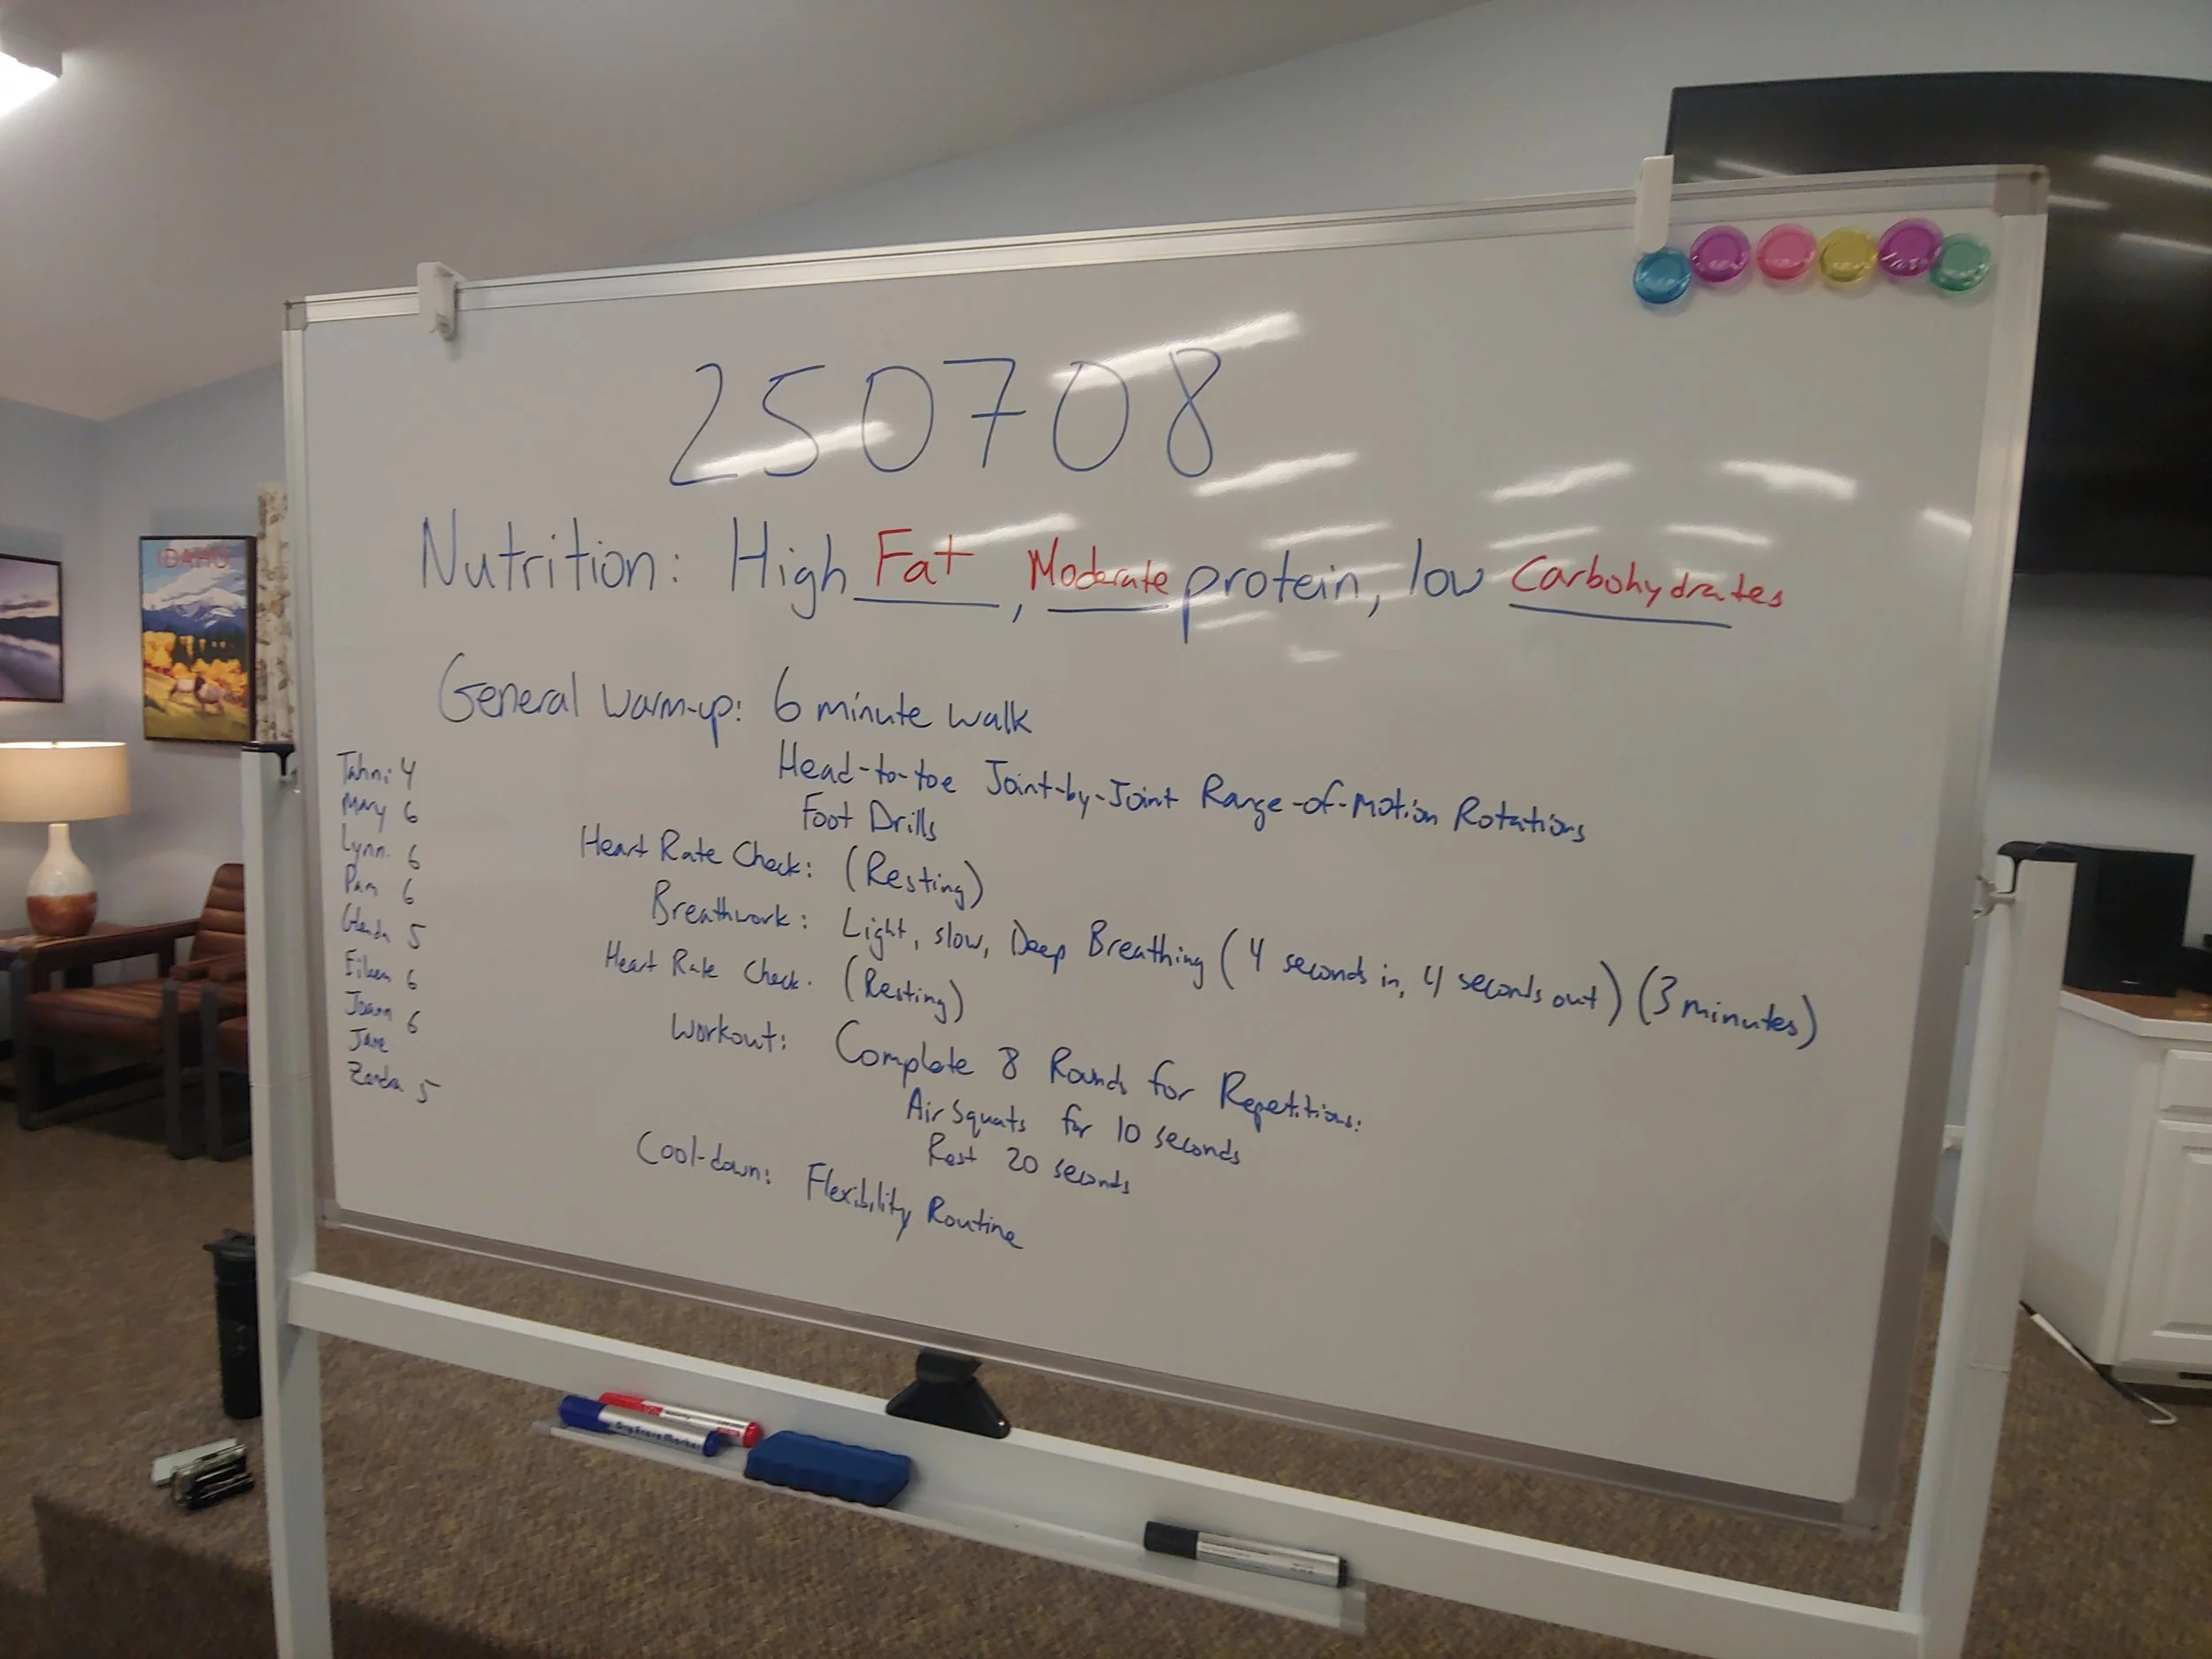 IDAHO
250708
Nutrition: High Fat, Moderate protein, low Carbohydrates
General Warm-up: 6 minute walk
Head-to-toe Joint-by-Joint Range-of-Motion Rotations
Foot Drills
Heart Rate Check: (Resting)
Breathwork: Light, slow, Deep Breathing (4 seconds in, 4 seconds out) (3 minutes)
Heart Rate Check. (Resting)
Workout: Complete 8 Rounds for Repetitions:
Air Squats for 10 seconds
Rest 20 seconds
Cool-down: Flexibility Routine
Tahni 4
Mary 6
Lynn 6
Pam 6
Glenda 5
Eileen 6
Joann 6
Jane
Zanda 5
Dry Erase Marker